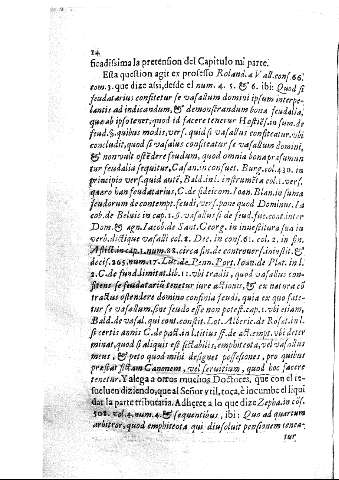 24
ficadissima la pretension del Capitulo mi parte.
Esta question agit ex professo Roland. a Vall. cons. 66.
tom. 3. que dize assi, desde el num. 4. 5. & 6. ibi: Quod si
feudatarius confitetur se vasallum domini ipsum interpe-
lantis ad indicandum, & demonstrandum bona feudalia,
quæ ab ipso tenet, quod id facere tenetur Hostiēs. in sum. de
feud. §. quibus modis, vers. quid si vasallus confiteatur. ubi
concludit, quod si vasalus confiteatur se vasallum domini,
& non vult ostēdere feudum, quod omnia bona præsumun
tur feudalia sequitur, Casan. in consuet. Burg. col. 430. in
principio vers. quid autē, Bald. in l. instrumēta col. 1. vers.
quæro ban feudatarius, C. de fideicom. Ioan. Blan. in suma
feudorum de contempt. feudi, vers. pone quod Dominus. Ia
cob. de Beluis in cap. 1. §. vasallus si de feud. fuc. cont. inter
Dom. & agn. Iacob de Sant. Georg. in inuestitura sua in
verb. dictique vasalli col. 2. Dec. in cons. 61. col. 2. in fin.
Afflict. in cap. 1. num. 22. circa fin. de controuers. inuestit. &
decis. 265. num. 17. Luc. de Penn. Port. Ioan. de Plat. in l.
2. C. de fund. limitat. lib. 11. ubi tradit, quod vasallus con-
fitens se feudatariū tenetur iure actionis, & ex natura cō
tractus ostendere domino confinia feudi, quia ex quo fate-
tur se vasallum, sine feudo esse non potest. cap. 1. ubi etiam,
Bald. de vasal. qui cont. constit. Lot. Alberic. de Rosat. in l.
si certis annis C. de pact. in l. sitius ff. de accept. ubi deter
minat, quod si aliquis est sictabilis, emphiteota, vel vasallus
meus, & peto quod mihi designet possessiones, pro quibus
præstat fictam Canonem, vel seruitium, quod hoc facere
tenetur. Y alega a otros muchos Doctores, que con el re-
sueluen diziendo, que al Señor vtil, toca, e incumbe el liqui
dar la parte tributaria. Adhere a lo que dize Zepha. in cōs.
502. vol. 4. num. 4. & sequentibus, ibi: Quo ad quartum
arbitror, quod emphiteota qui dissoluit pensionem tenea-
tur